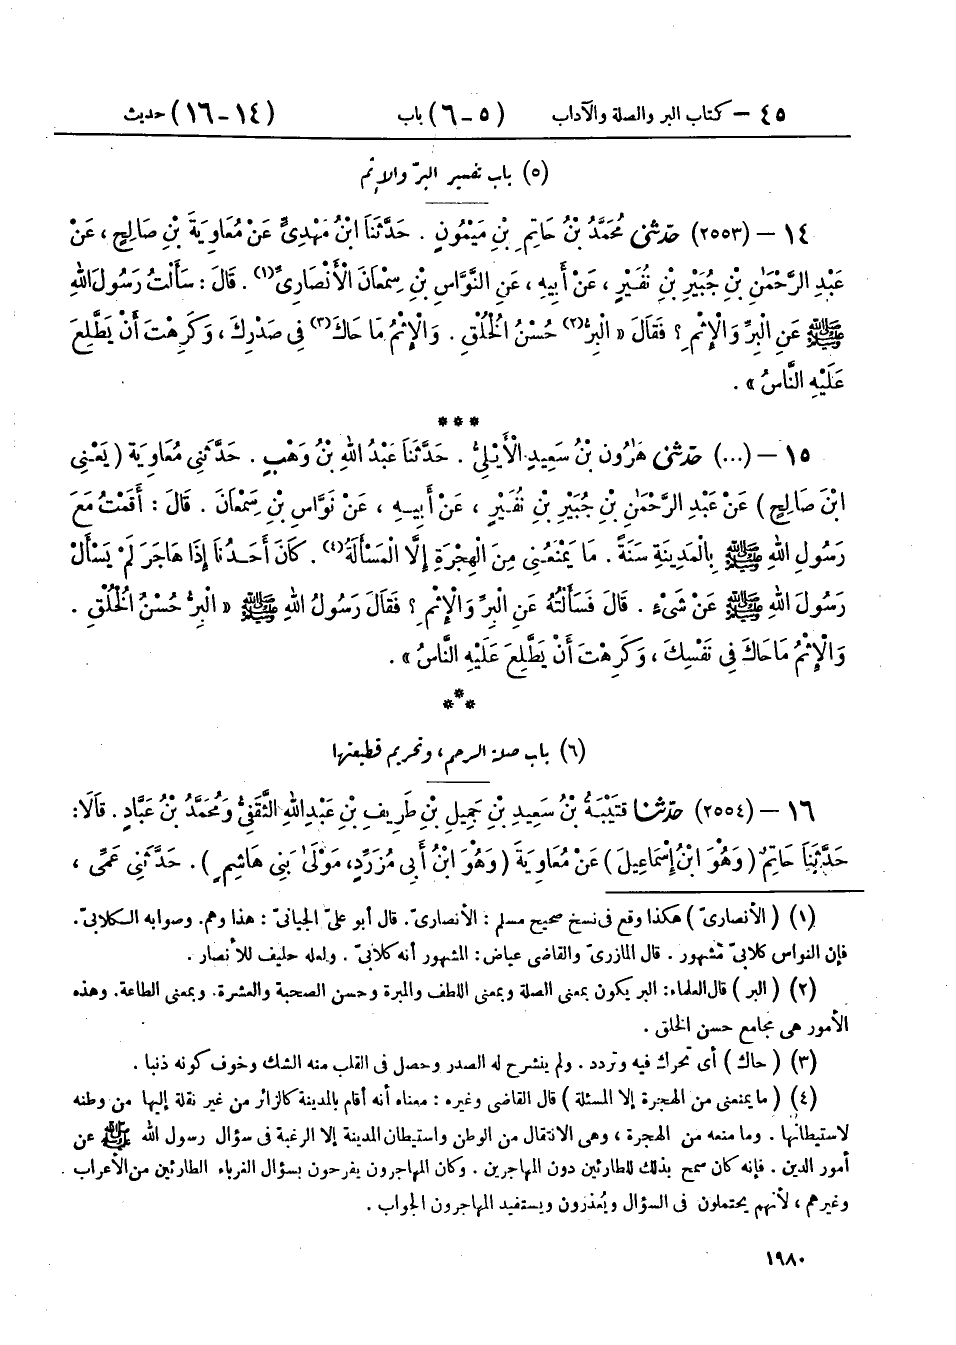 ٤٥ – كتاب البر والصلة والآداب (٥ – ٦) باب (١٤ – ١٦) حديث
(٥) باب تفسير البرّ والإثم
١٤ – (٢٥٥٣) حَدَّثَنِي مُحَمَّدُ بْنُ حَاتِمِ بْنِ مَيْمُونٍ . حَدَّثَنَا ابْنُ مَهْدِيٍّ عَنْ مُعَاوِيَةَ بْنِ صَالِحٍ ، عَنْ
عَبْدِ الرَّحْمَٰنِ بْنِ جُبَيْرِ بْنِ نُفَيْرٍ ، عَنْ أَبِيهِ ، عَنِ النَّوَّاسِ بْنِ سِمْعَانَ الْأَنْصَارِيِّ(١) . قَالَ : سَأَلْتُ رَسُولَ اللهِ
ﷺ عَنِ الْبِرِّ وَالْإِثْمِ ؟ فَقَالَ « الْبِرُّ(٢) حُسْنُ الْخُلُقِ . وَالْإِثْمُ مَا حَاكَ(٣) فِي صَدْرِكَ ، وَكَرِهْتَ أَنْ يَطَّلِعَ
عَلَيْهِ النَّاسُ » .
* * *
١٥ – (...) حَدَّثَنِي هَٰرُونُ بْنُ سَعِيدٍ الْأَيْلِيُّ . حَدَّثَنَا عَبْدُ اللهِ بْنُ وَهْبٍ . حَدَّثَنِي مُعَاوِيَةُ ( يَعْنِي
ابْنَ صَالِحٍ ) عَنْ عَبْدِ الرَّحْمَٰنِ بْنِ جُبَيْرِ بْنِ نُفَيْرٍ ، عَنْ أَبِيهِ ، عَنْ نَوَّاسِ بْنِ سِمْعَانَ . قَالَ : أَقَمْتُ مَعَ
رَسُولِ اللهِ ﷺ بِالْمَدِينَةِ سَنَةً . مَا يَمْنَعُنِي مِنَ الْهِجْرَةِ إِلَّا الْمَسْأَلَةُ(٤) . كَانَ أَحَدُنَا إِذَا هَاجَرَ لَمْ يَسْأَلْ
رَسُولَ اللهِ ﷺ عَنْ شَيْءٍ . قَالَ فَسَأَلْتُهُ عَنِ الْبِرِّ وَالْإِثْمِ ؟ فَقَالَ رَسُولُ اللهِ ﷺ « الْبِرُّ حُسْنُ الْخُلُقِ .
وَالْإِثْمُ مَا حَاكَ فِي نَفْسِكَ ، وَكَرِهْتَ أَنْ يَطَّلِعَ عَلَيْهِ النَّاسُ » .
* * *
(٦) باب صلة الرحم ، وتحريم قطيعتها
١٦ – (٢٥٥٤) حَدَّثَنَا قُتَيْبَةُ بْنُ سَعِيدِ بْنِ جَمِيلِ بْنِ طَرِيفِ بْنِ عَبْدِ اللهِ الثَّقَفِيُّ وَمُحَمَّدُ بْنُ عَبَّادٍ . قَالَا :
حَدَّثَنَا حَاتِمٌ ( وَهُوَ ابْنُ إِسْمَاعِيلَ ) عَنْ مُعَاوِيَةَ ( وَهُوَ ابْنُ أَبِي مُزَرِّدٍ، مَوْلَىٰ بَنِي هَاشِمٍ ) . حَدَّثَنِي عَمِّي ،
(١) ( الأنصاريّ ) هكذا وقع في نسخ صحيح مسلم : الأنصاريّ . قال أبو عليّ الجيانيّ : هذا وهم . وصوابه الكلابيّ .
فإن النواس كلابيّ مشهور . قال المازريّ والقاضي عياض : المشهور أنه كلابيّ . ولعله حليف للأنصار .
(٢) ( البر ) قال العلماء : البر يكون بمعنى الصلة وبمعنى اللطف والمبرة وحسن الصحبة والعشرة . وبمعنى الطاعة . وهذه
الأمور هي مجامع حسن الخلق .
(٣) ( حاك ) أي تحرك فيه وتردد . ولم ينشرح له الصدر وحصل في القلب منه الشك وخوف كونه ذنبا .
(٤) ( ما يمنعني من الهجرة إلا المسئلة ) قال القاضي وغيره : معناه أنه أقام بالمدينة كالزائر من غير نقلة إليها من وطنه
لاستيطانها . وما منعه من الهجرة ، وهي الانتقال من الوطن واستيطان المدينة إلا الرغبة في سؤال رسول الله ﷺ عن
أمور الدين . فإنه كان سمح بذلك للطارئين دون المهاجرين . وكان المهاجرون يفرحون بسؤال الغرباء الطارئين من الأعراب
وغيرهم ، لأنهم يحتملون في السؤال ويُعذرون ويستفيد المهاجرون الجواب .
١٩٨٠